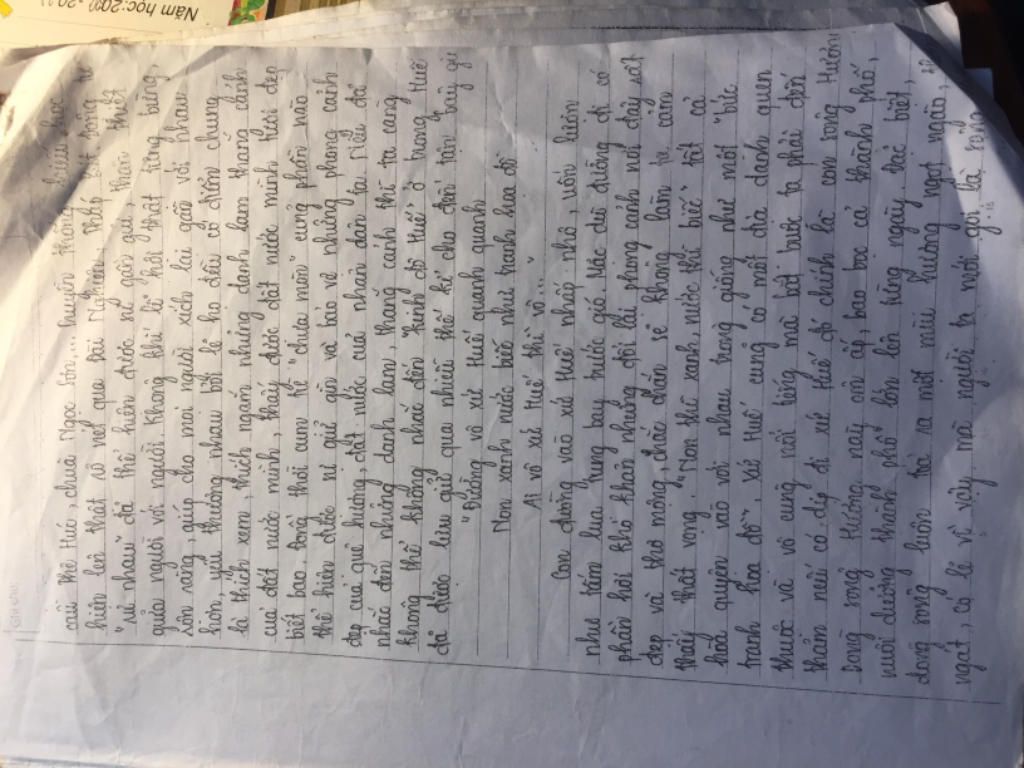 Năm học: 20
cầu Thê Húc, chùa Ngọc Sơn,...
hiện lên thật rõ nét qua Đài Nghiên, Tháp Bút
"rủ nhau" đã thể hiện được sự gần gũi, thân thiết
giữa người với người. Không khí lễ hội thật tưng bừng,
sôn sàng, giúp cho mọi người xích lại gần với nhau
hơn, yêu thương nhau bởi lẽ họ đều có điểm chung
là thích xem, thích ngắm những danh lam thắng cảnh
của đất nước mình, thấy được đất nước mình tươi đẹp
biết bao, đồng thời cụm từ "chưa mòn" cũng phần nào
thể hiện được sự giữ gìn và bảo vệ những phong cảnh
đẹp của quê hương, đất nước của nhân dân ta. Nếu đã
nhắc đến những danh lam, thắng cảnh thì ta càng
không thể không nhắc đến "kinh đô Huế" ở trong Huế
đã được lưu giữ qua nhiều thế kỉ cho đến tận bây giờ
"Đường vô xứ Huế quanh quanh
Non xanh nước biếc như tranh họa đồ
Ai vô xứ Huế thì vô..."
Con đường vào xứ Huế nhấp nhô, uốn lượn
như tấm lụa tung bay trước gió. Mặc dù đường đi có
phần hơi khó khăn nhưng đổi lại phong cảnh nơi đây rất
đẹp và thơ mộng, chắc chắn sẽ không làm ta cảm
thấy thất vọng. "Non thì xanh, nước thì biếc" tất cả
hoà quyện vào với nhau trông giống như một "bức
tranh họa đồ". Xứ Huế cũng có một địa danh quen
thuộc và vô cùng nổi tiếng mà bắt buộc ta phải đến
thăm nếu có dịp đi xứ Huế đó chính là con sông Hương
Dòng sông Hương này ôm ấp, bao bọc cả thành phố,
nuôi dưỡng thành phố lớn lên từng ngày, đặc biệt,
dòng sông luôn tỏa ra một mùi hương ngọt ngào,
ngát, có lẽ vì vậy mà người ta mới gọi là sông